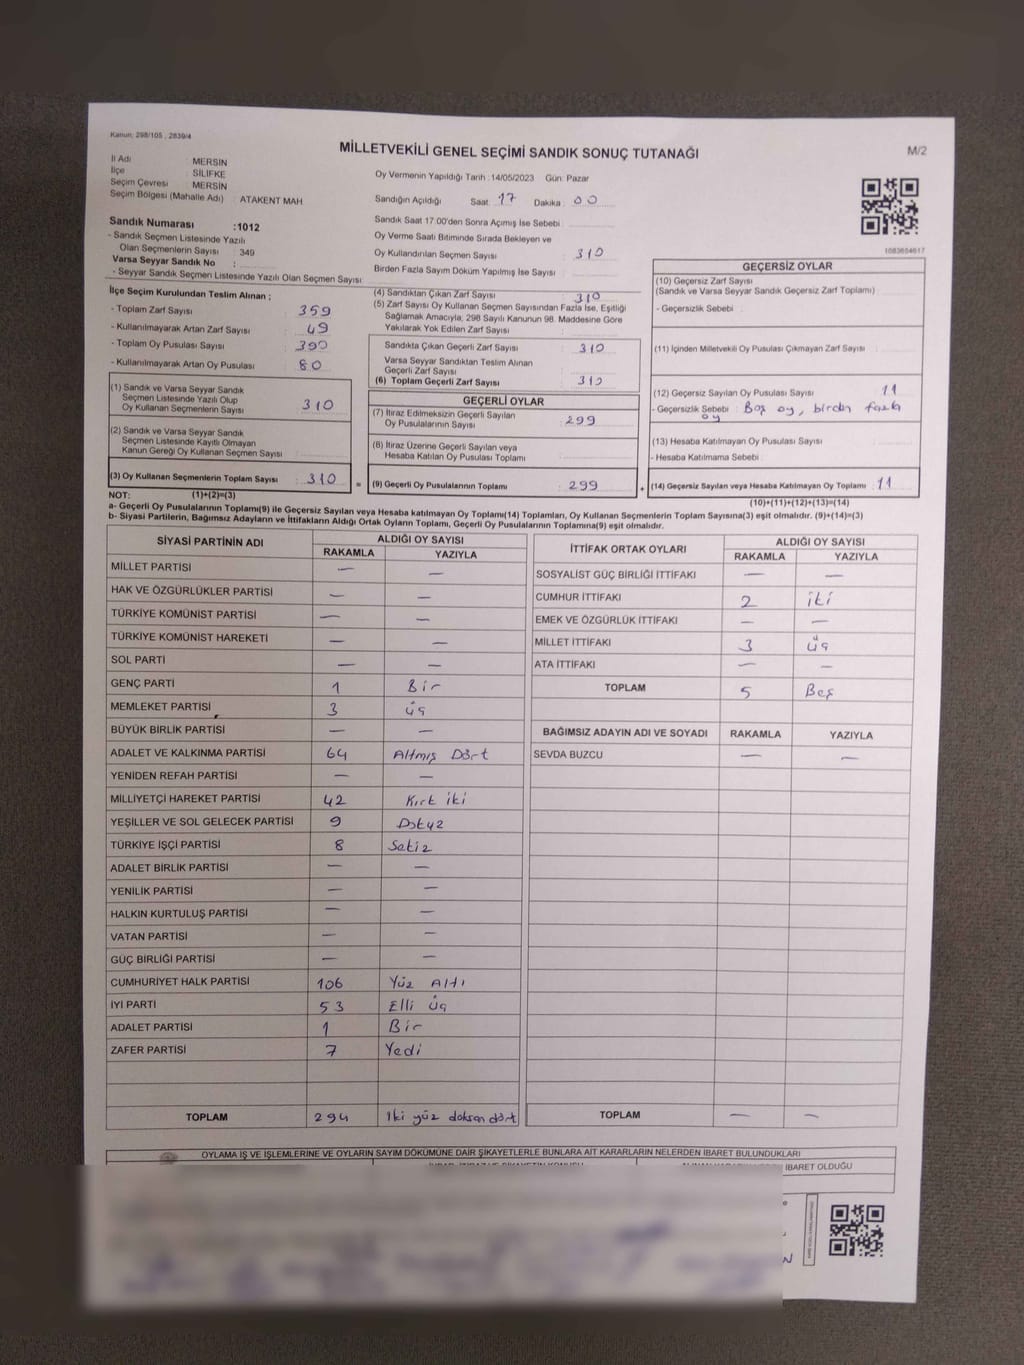 Kanun: 298/105 , 2839/4
MİLLETVEKİLİ GENEL SEÇİMİ SANDIK SONUÇ TUTANAĞI
M/2
İl Adı : MERSİN
İlçe : SİLİFKE
Seçim Çevresi : MERSİN
Seçim Bölgesi (Mahalle Adı) : ATAKENT MAH
Oy Vermenin Yapıldığı Tarih :14/05/2023 Gün: Pazar
Sandığın Açıldığı Saat: 17 Dakika: 00
Sandık Numarası :1012
- Sandık Seçmen Listesinde Yazılı
Olan Seçmenlerin Sayısı : 349
Varsa Seyyar Sandık No :
- Seyyar Sandık Seçmen Listesinde Yazılı Olan Seçmen Sayısı :
Sandık Saat 17.00'den Sonra Açımış İse Sebebi :
Oy Verme Saati Bitiminde Sırada Bekleyen ve
Oy Kullandırılan Seçmen Sayısı : 310
Birden Fazla Sayım Döküm Yapılmış İse Sayısı :
1083604617
İlçe Seçim Kurulundan Teslim Alınan ;
- Toplam Zarf Sayısı : 359
- Kullanılmayarak Artan Zarf Sayısı : 49
- Toplam Oy Pusulası Sayısı : 390
- Kullanılmayarak Artan Oy Pusulası : 80
(4) Sandıktan Çıkan Zarf Sayısı : 310
(5) Zarf Sayısı Oy Kullanan Seçmen Sayısından Fazla İse, Eşitliği
Sağlamak Amacıyla, 298 Sayılı Kanunun 98. Maddesine Göre
Yakılarak Yok Edilen Zarf Sayısı :
Sandıkta Çıkan Geçerli Zarf Sayısı : 310
Varsa Seyyar Sandıktan Teslim Alınan
Geçerli Zarf Sayısı :
(6) Toplam Geçerli Zarf Sayısı : 310
GEÇERSİZ OYLAR
(10) Geçersiz Zarf Sayısı
(Sandık ve Varsa Seyyar Sandık Geçersiz Zarf Toplamı) :
- Geçersizlik Sebebi :
(11) İçinden Milletvekili Oy Pusulası Çıkmayan Zarf Sayısı :
(12) Geçersiz Sayılan Oy Pusulası Sayısı : 11
- Geçersizlik Sebebi : Boş oy, birden fazla
oy
(13) Hesaba Katılmayan Oy Pusulası Sayısı :
- Hesaba Katılmama Sebebi :
(14) Geçersiz Sayılan veya Hesaba Katılmayan Oy Toplamı : 11
(10)+(11)+(12)+(13)=(14)
(1) Sandık ve Varsa Seyyar Sandık
Seçmen Listesinde Yazılı Olup
Oy Kullanan Seçmenlerin Sayısı : 310
(2) Sandık ve Varsa Seyyar Sandık
Seçmen Listesinde Kayıtlı Olmayan
Kanun Gereği Oy Kullanan Seçmen Sayısı :
(3) Oy Kullanan Seçmenlerin Toplam Sayısı : 310 =
GEÇERLİ OYLAR
(7) İtiraz Edilmeksizin Geçerli Sayılan
Oy Pusulalarının Sayısı : 299
(8) İtiraz Üzerine Geçerli Sayılan veya
Hesaba Katılan Oy Pusulası Toplamı :
(9) Geçerli Oy Pusulalarının Toplamı : 299 +
NOT: (1)+(2)=(3)
a- Geçerli Oy Pusulalarının Toplamı(9) ile Geçersiz Sayılan veya Hesaba Katılmayan Oy Toplamı(14) Toplamları, Oy Kullanan Seçmenlerin Toplam Sayısına(3) eşit olmalıdır. (9)+(14)=(3)
b- Siyasi Partilerin, Bağımsız Adayların ve İttifakların Aldığı Ortak Oyların Toplamı, Geçerli Oy Pusulalarının Toplamına(9) eşit olmalıdır.
SİYASİ PARTİNİN ADI ALDIĞI OY SAYISI
RAKAMLA YAZIYLA
MİLLET PARTİSİ — —
HAK VE ÖZGÜRLÜKLER PARTİSİ — —
TÜRKİYE KOMÜNİST PARTİSİ — —
TÜRKİYE KOMÜNİST HAREKETİ — —
SOL PARTİ — —
GENÇ PARTİ 1 Bir
MEMLEKET PARTİSİ 3 üç
BÜYÜK BİRLİK PARTİSİ — —
ADALET VE KALKINMA PARTİSİ 64 Altmış Dört
YENİDEN REFAH PARTİSİ — —
MİLLİYETÇİ HAREKET PARTİSİ 42 Kırk iki
YEŞİLLER VE SOL GELECEK PARTİSİ 9 Dokuz
TÜRKİYE İŞÇİ PARTİSİ 8 Sekiz
ADALET BİRLİK PARTİSİ — —
YENİLİK PARTİSİ — —
HALKIN KURTULUŞ PARTİSİ — —
VATAN PARTİSİ — —
GÜÇ BİRLİĞİ PARTİSİ — —
CUMHURİYET HALK PARTİSİ 106 Yüz Altı
İYİ PARTİ 53 Elli üç
ADALET PARTİSİ 1 Bir
ZAFER PARTİSİ 7 Yedi
TOPLAM 294 İki yüz doksan dört
İTTİFAK ORTAK OYLARI ALDIĞI OY SAYISI
RAKAMLA YAZIYLA
SOSYALİST GÜÇ BİRLİĞİ İTTİFAKI — —
CUMHUR İTTİFAKI 2 iki
EMEK VE ÖZGÜRLÜK İTTİFAKI — —
MİLLET İTTİFAKI 3 üç
ATA İTTİFAKI — —
TOPLAM 5 Beş
BAĞIMSIZ ADAYIN ADI VE SOYADI RAKAMLA YAZIYLA
SEVDA BUZCU — —
TOPLAM — —
OYLAMA İŞ VE İŞLEMLERİNE VE OYLARIN SAYIM DÖKÜMÜNE DAİR ŞİKAYETLERLE BUNLARA AİT KARARLARIN NELERDEN İBARET BULUNDUKLARI
İBARET OLDUĞU